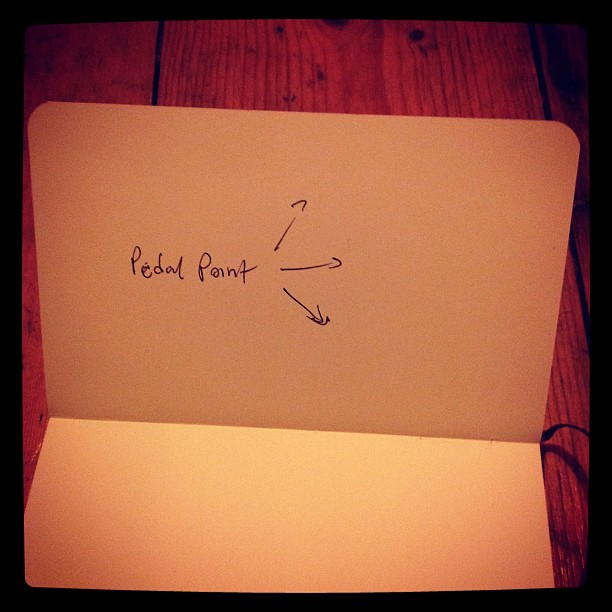 Pedal Point